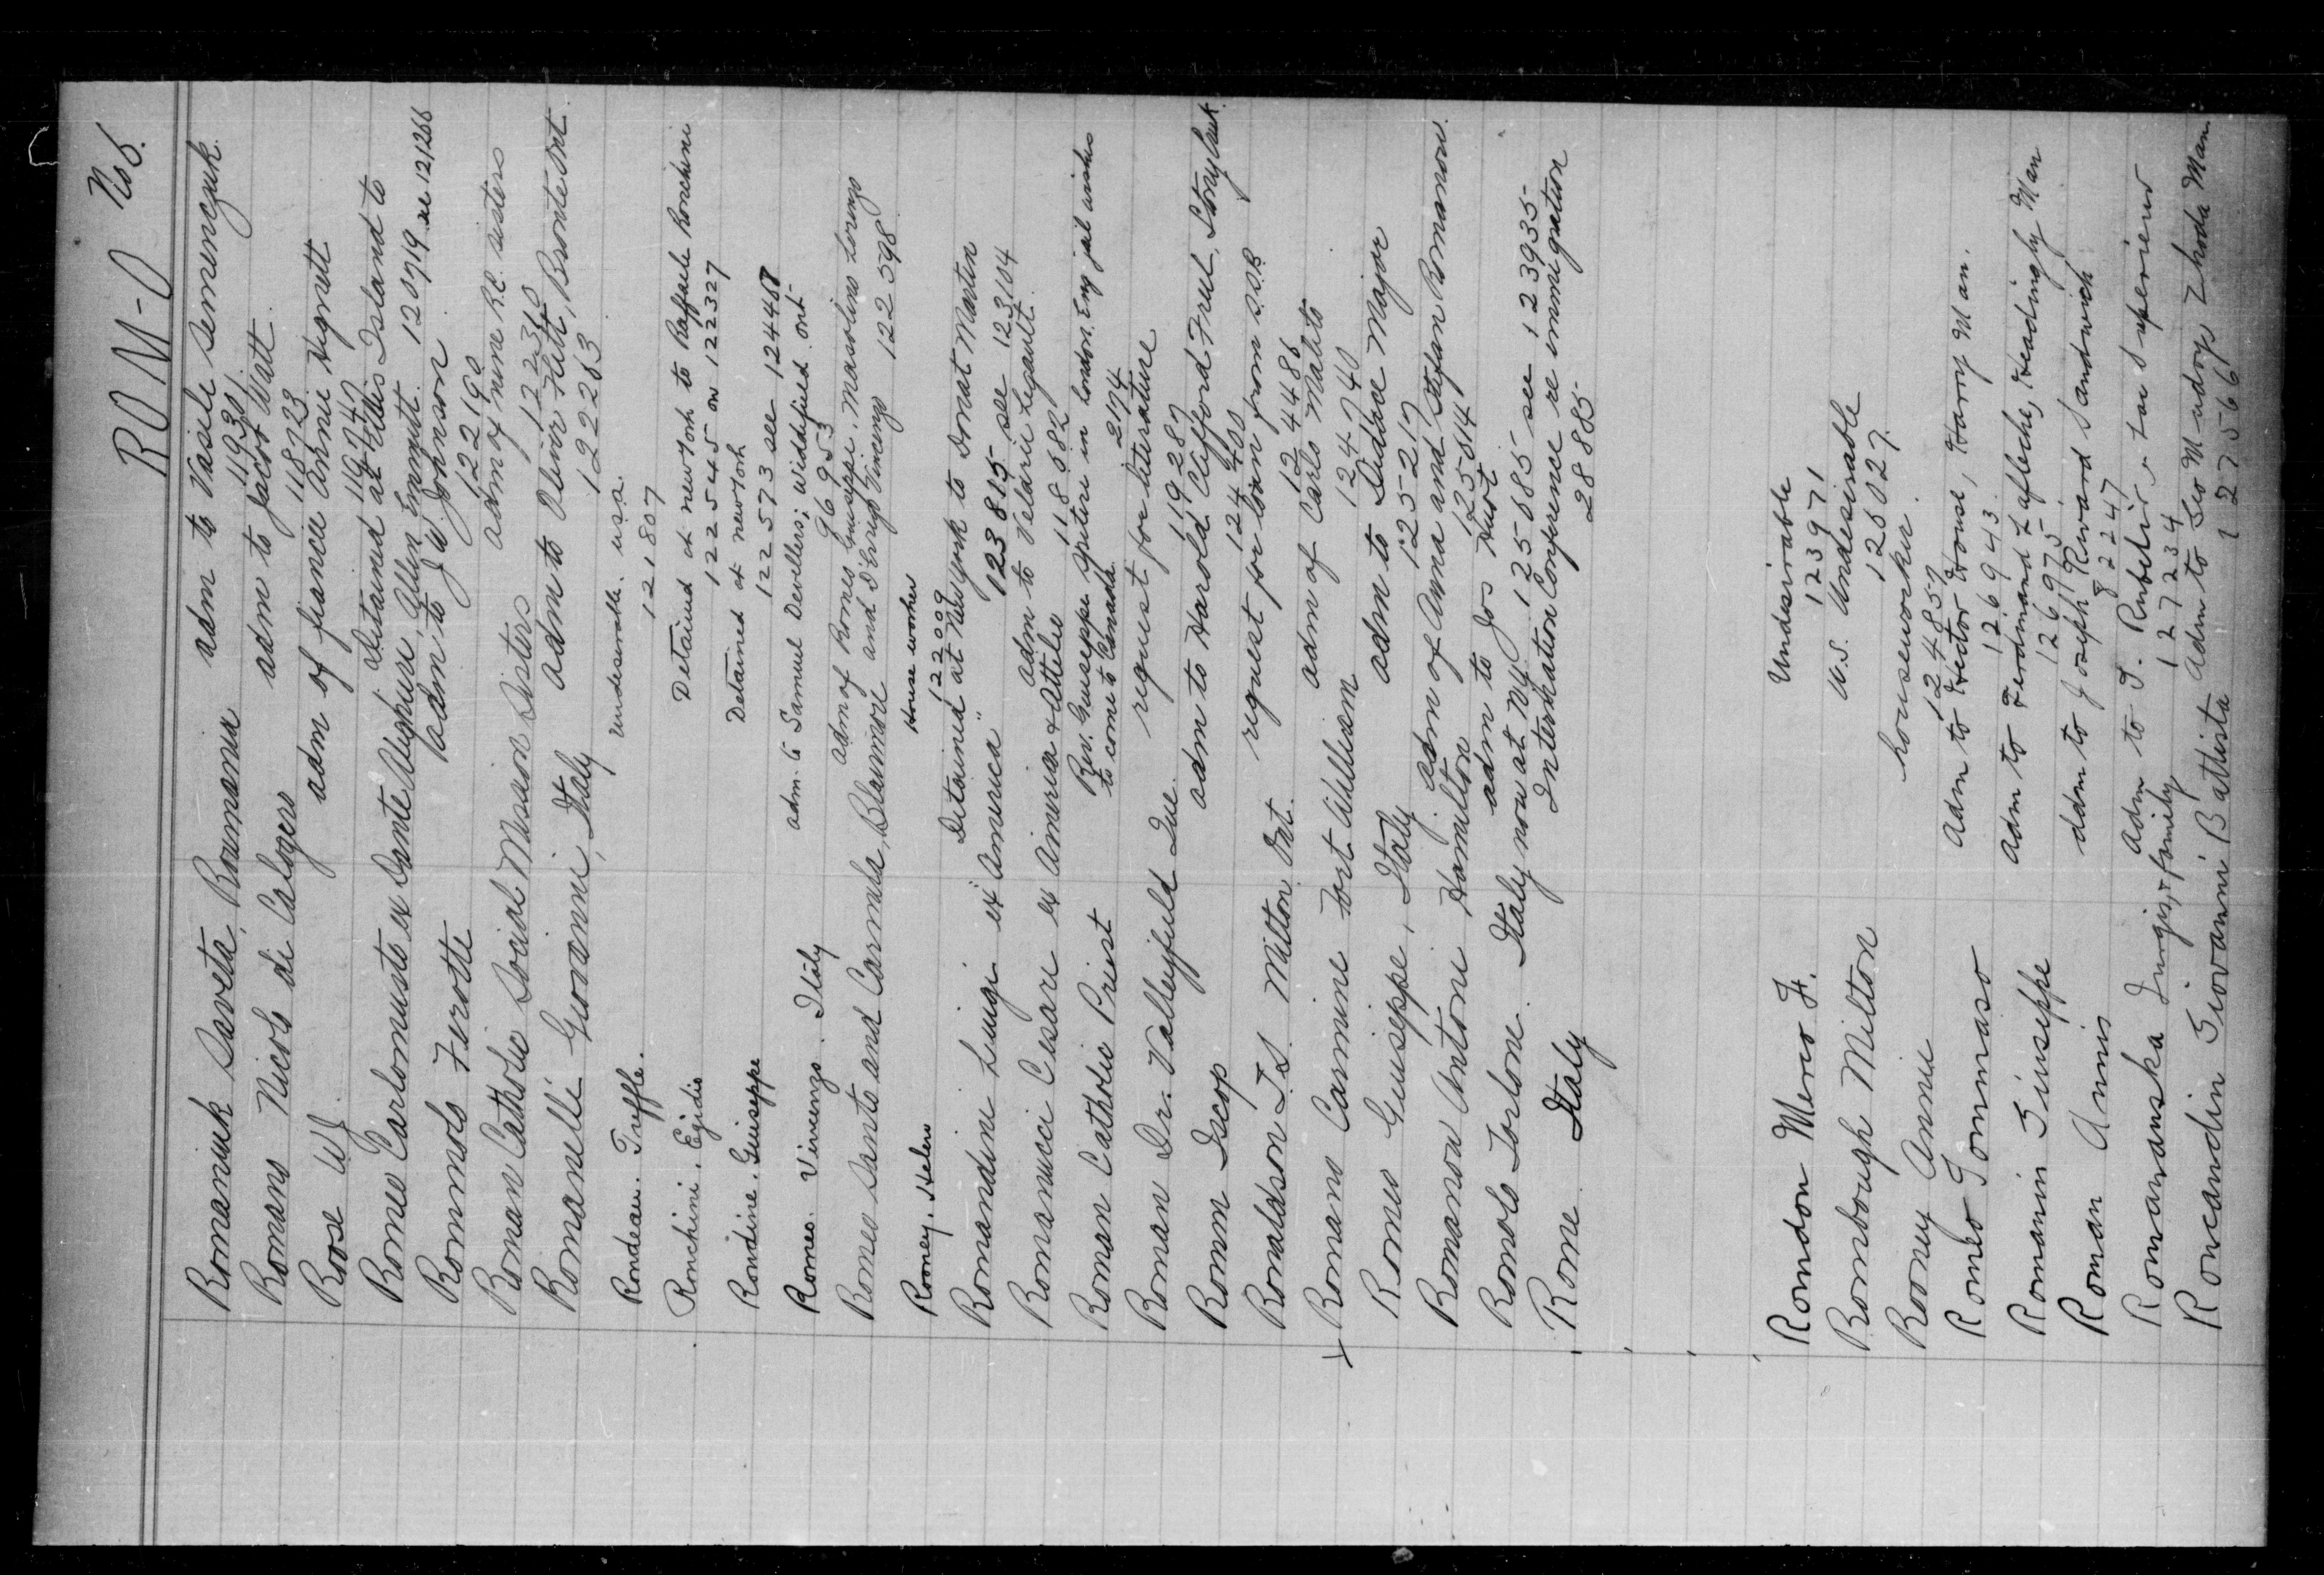 ROM-O No 6.
Romaniuk Saveta, Roumania adm to Vasile Semenczuk.
11930
Romano Nicolo di Calogero adm to Jacob Watt.
118723
Roose W J adm of fiancée Annie Hignett
Romeo Carlomusto ex Dante Alighieri, detained at Ellis Island to
Allen Emmett. 120719 see 121266
Rommols Ferotte adm to J W Johnson
122190
Roman Catholic Social Mission Sisters adm of nine R.C. sisters
122360
Romanelli Giovanni, Italy adm to Oliver Flatt, Bronte Ont.
122263
Rondeau. Treffle. undesirable. usa.
121807
Ronchini. Egidio Detained at New York to Raffaele Ronchini
122545 or 122327
Rondine. Guiseppe Detained at New York
122573 see 124468
Romeo. Vincenzo. Italy adm. to Samuel Devellers; Widdifield. Ont-
96953
Romeo Santo and Carmela, Blairmore adm of Romeo Guiseppe. Masolino Lorenzo
and Vincenzo 122598
Rooney. Helen House worker
122009
Romandini Luigi ex "America" Detained at New York to Donat Martin
123815 see 123104
Romanucci Cesare ex America & Attelie adm to Velarie Legault.
118682
Roman Catholic Priest Rev. Guiseppe in London. Eng jail wishes
to come to Canada. 2174
Roman Dr. Valleyfield Que. request for literature
119287
Romm Iscop adm to Harold Clifford Freel, Stony
124400
Romaldson I.S. Milton Ont. request for loan from S.S.B
124486
Romano Carmine Fort William adm of Carlo Maluto
124740
Romeo Guiseppe, Italy adm to Didace Major
125217
Romanow Antoni Hamilton adm of Anna and Stefan Romanow.
125514
Romolo Torlone. Italy now at N.Y. adm to Jos Huot
125685 see 123935
Rome. Italy Interhation Conference re immigration
288885
Romdon Mero F. Undesirable
123971
Rombough Milton U.S. Undesirable
126027
Roomy Annie houseworker.
124857
Romeo Tommaso Adm to Hector House, Harry Man.
126943
Romanin Giuseppe Adm to Ferdinand Lafleche, Headingly Man
126975
Roman Annis adm to Joseph Rivard Sandwich
82247
Romanska Jurgis & family Adm to J.
127234
Roncandin Giovanni Battista Adm to Leo Mudry Zhoda Man.
127566